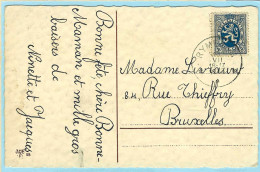 Bonne fête, chère Bonne-
Maman et mille gros
baisers de
Ninette et Jacques
Madame Livrauw
84, Rue Thieffry
Bruxelles